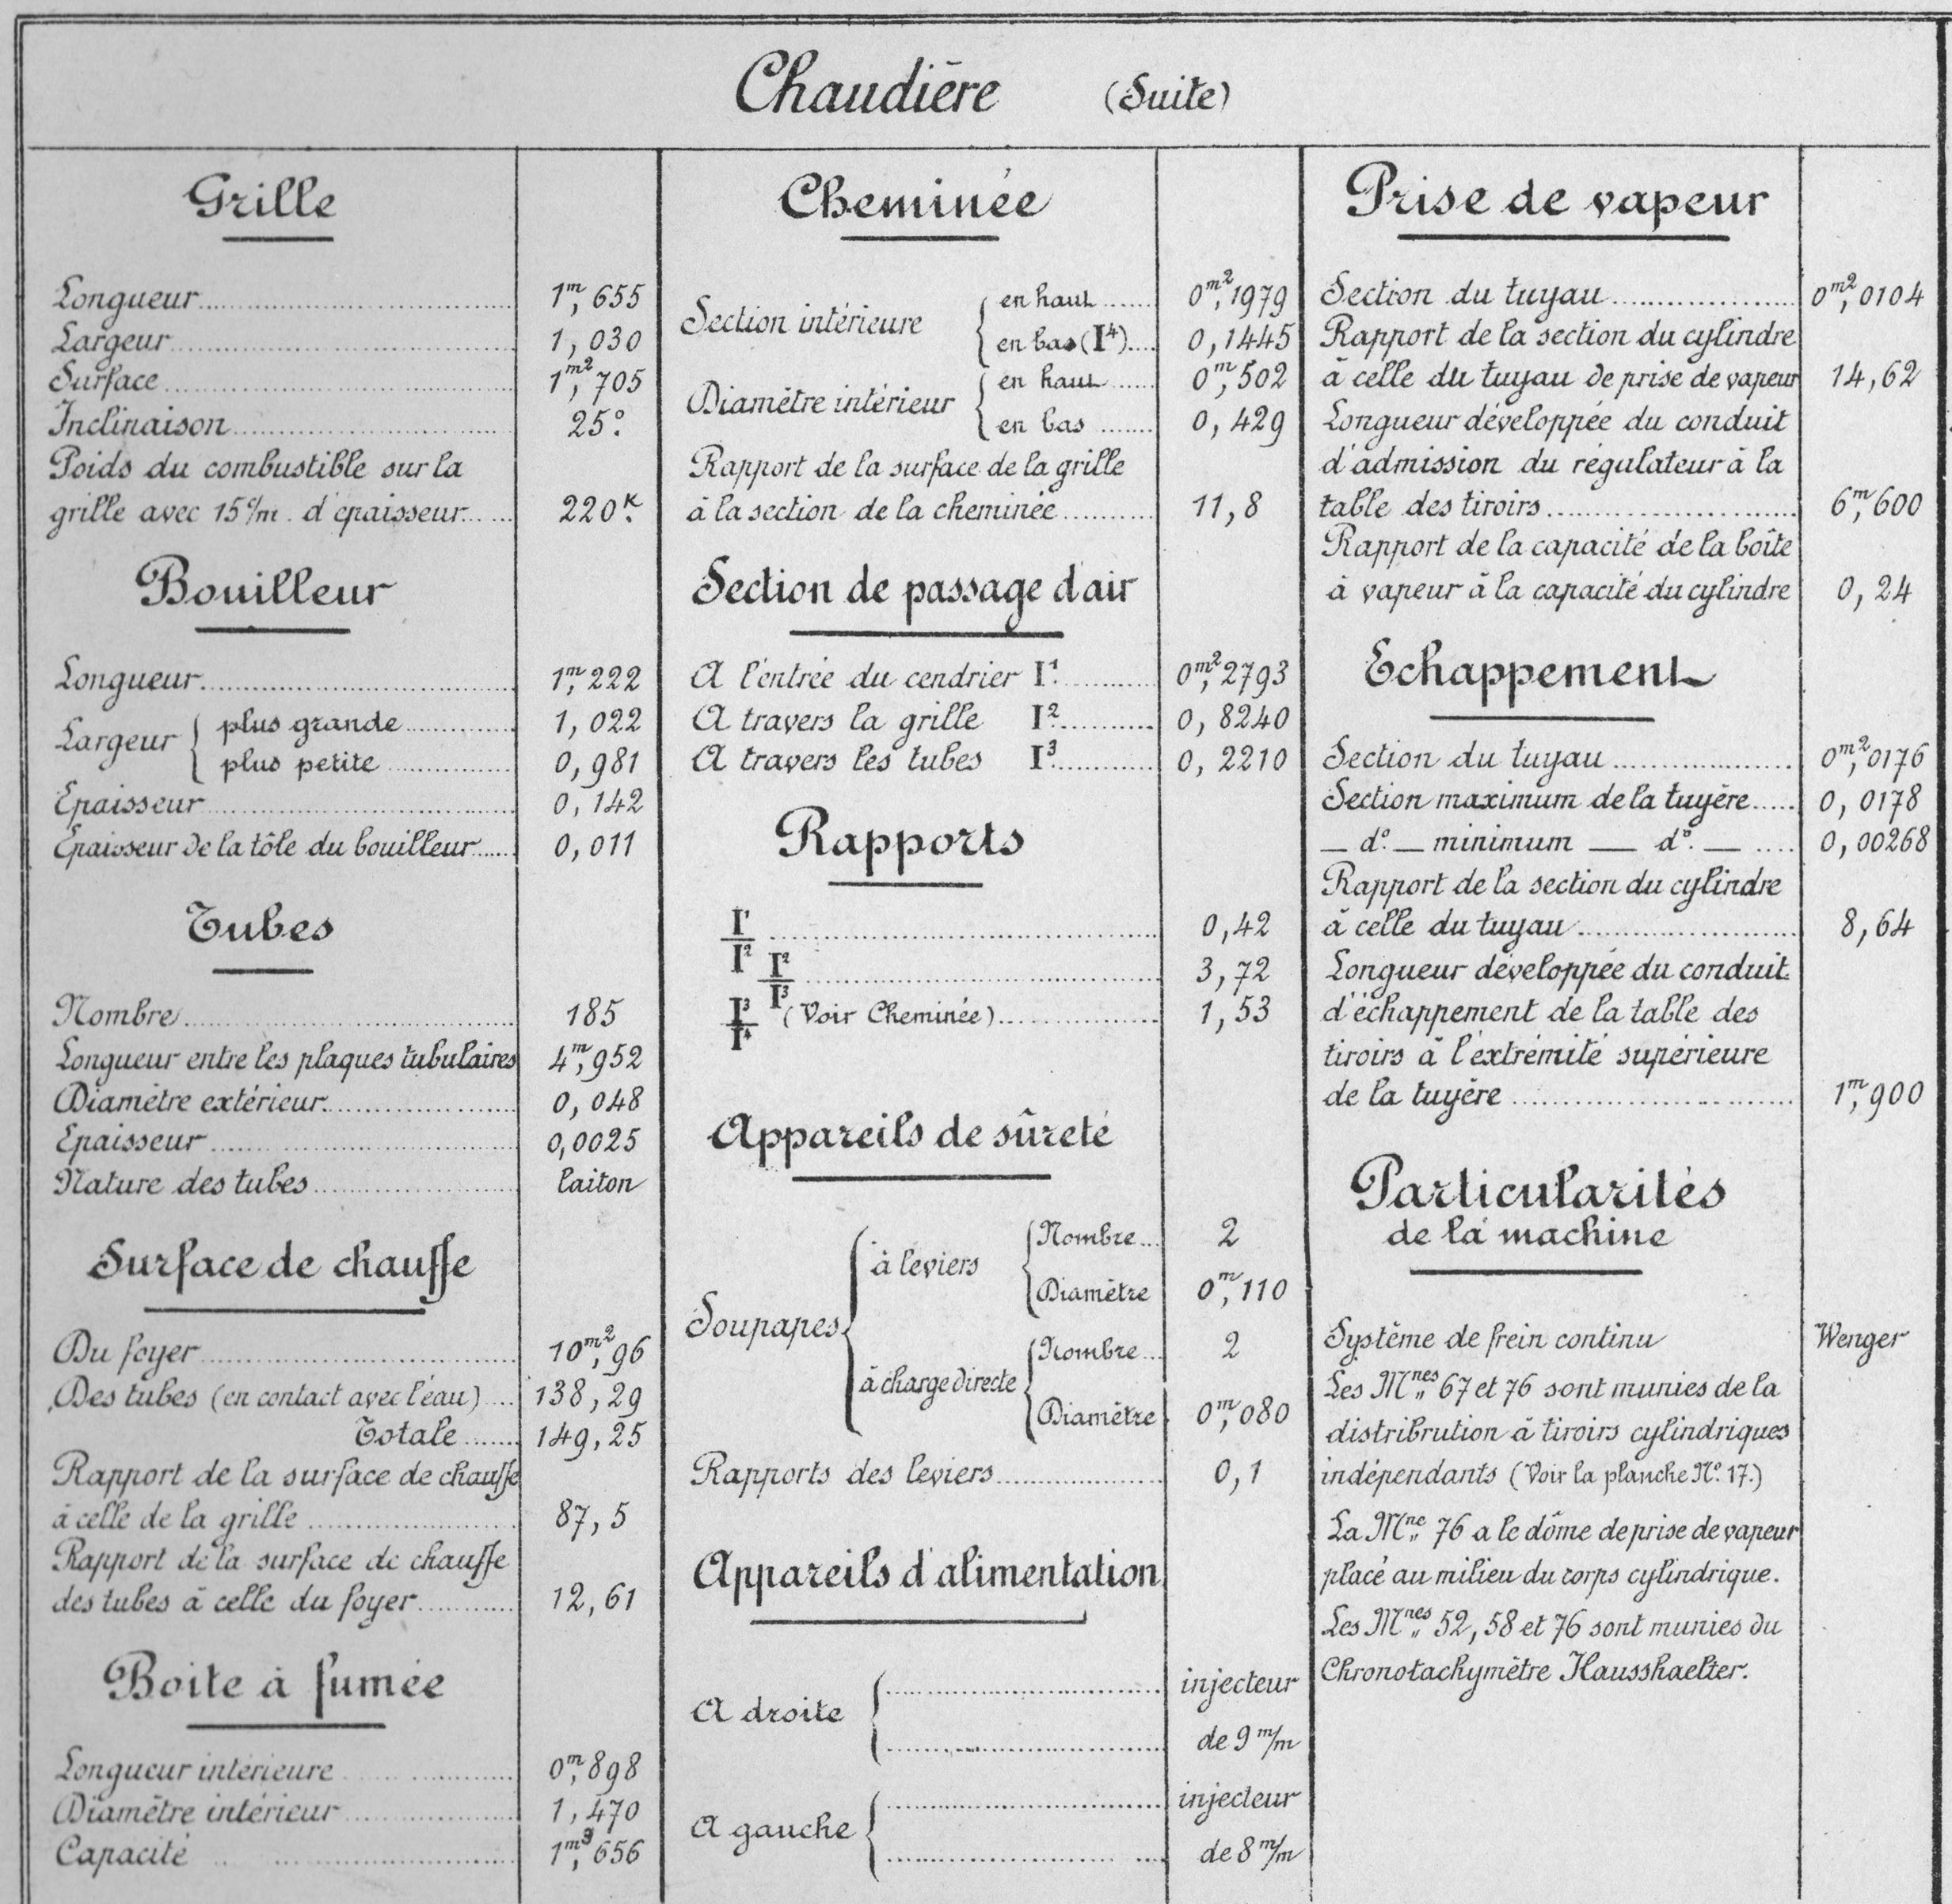 Chaudière (Suite)
Grille
Longueur 1m,655
Largeur 1,030
Surface 1m²,705
Inclinaison 25°.
Poids du combustible sur la
grille avec 15c/m. d'épaisseur 220K.
Bouilleur
Longueur 1m,222
Largeur { plus grande 1,022
plus petite 0,981
Epaisseur 0,142
Epaisseur de la tôle du bouilleur 0,011
Tubes
Nombre 185
Longueur entre les plaques tubulaires 4m,952
Diamètre extérieur 0,048
Epaisseur 0,0025
Nature des tubes laiton
Surface de chauffe
Du foyer 10m²,96
Des tubes (en contact avec l'eau) 138,29
Totale 149,25
Rapport de la surface de chauffe
à celle de la grille 87,5
Rapport de la surface de chauffe
des tubes à celle du foyer 12,61
Boite à fumée
Longueur intérieure 0m,898
Diamètre intérieur 1,470
Capacité 1m³,656
Cheminée
Section intérieure { en haut 0m²,1979
en bas (I⁴) 0,1445
Diamètre intérieur { en haut 0m,502
en bas 0,429
Rapport de la surface de la grille
à la section de la cheminée 11,8
Section de passage d'air
A l'entrée du cendrier I¹ 0m²,2793
A travers la grille I² 0,8240
A travers les tubes I³ 0,2210
Rapports
I¹/I² 0,42
I²/I³ 3,72
I³/I⁴ (Voir Cheminée) 1,53
Appareils de sûreté
Soupapes { à leviers { Nombre 2
Diamètre 0m,110
à charge directe { Nombre 2
Diamètre 0m,080
Rapports des leviers 0,1
Appareils d'alimentation
A droite { injecteur
de 9 m/m
A gauche { injecteur
de 8 m/m
Prise de vapeur
Section du tuyau 0m²,0104
Rapport de la section du cylindre
à celle du tuyau de prise de vapeur 14,62
Longueur développée du conduit
d'admission du régulateur à la
table des tiroirs 6m,600
Rapport de la capacité de la boîte
à vapeur à la capacité du cylindre 0,24
Echappement
Section du tuyau 0m²,0176
Section maximum de la tuyère 0,0178
— d°. — minimum — d°. — 0,00268
Rapport de la section du cylindre
à celle du tuyau 8,64
Longueur développée du conduit
d'échappement de la table des
tiroirs à l'extrémité supérieure
de la tuyère 1m,900
Particularités
de la machine
Système de frein continu Wenger
Les Mnes 67 et 76 sont munies de la
distribrution à tiroirs cylindriques
indépendants (Voir la planche N°. 17.)
La Mne 76 a le dôme de prise de vapeur
placé au milieu du corps cylindrique.
Les Mnes 52, 58 et 76 sont munies du
Chronotachymètre Hausshaelter.